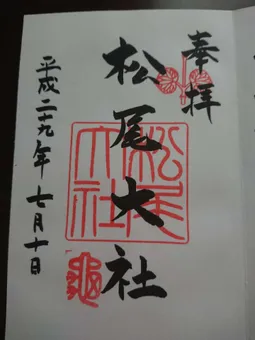 奉拝
松尾大社
松尾大社
平成二十九年 七月十日